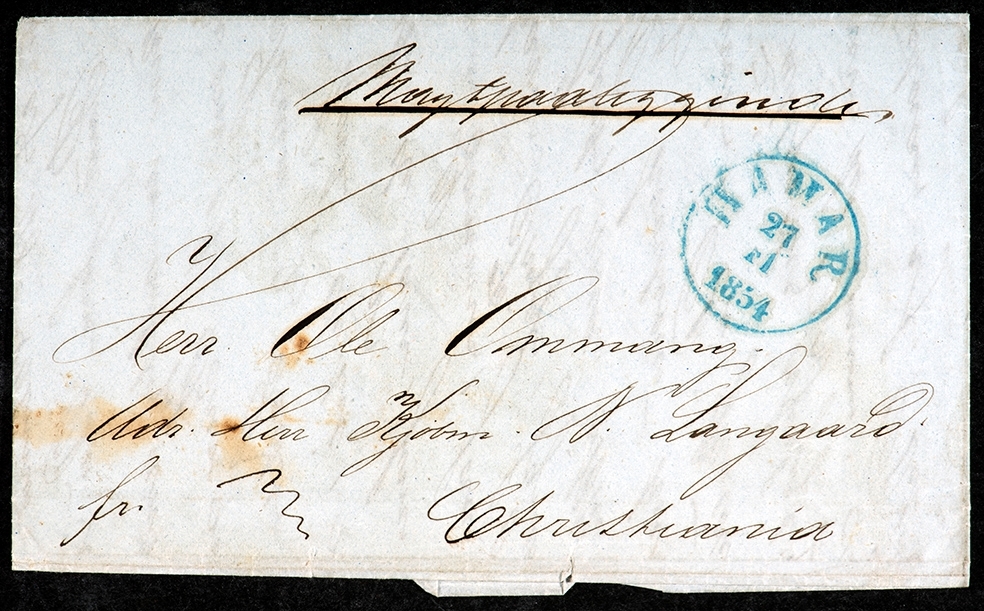 Magtpaaliggende
HAMAR
27
11
1854
Herr Ole Ommang.
Adr. Herr Kjøbm. N. Langaard.
fr.
Christiania